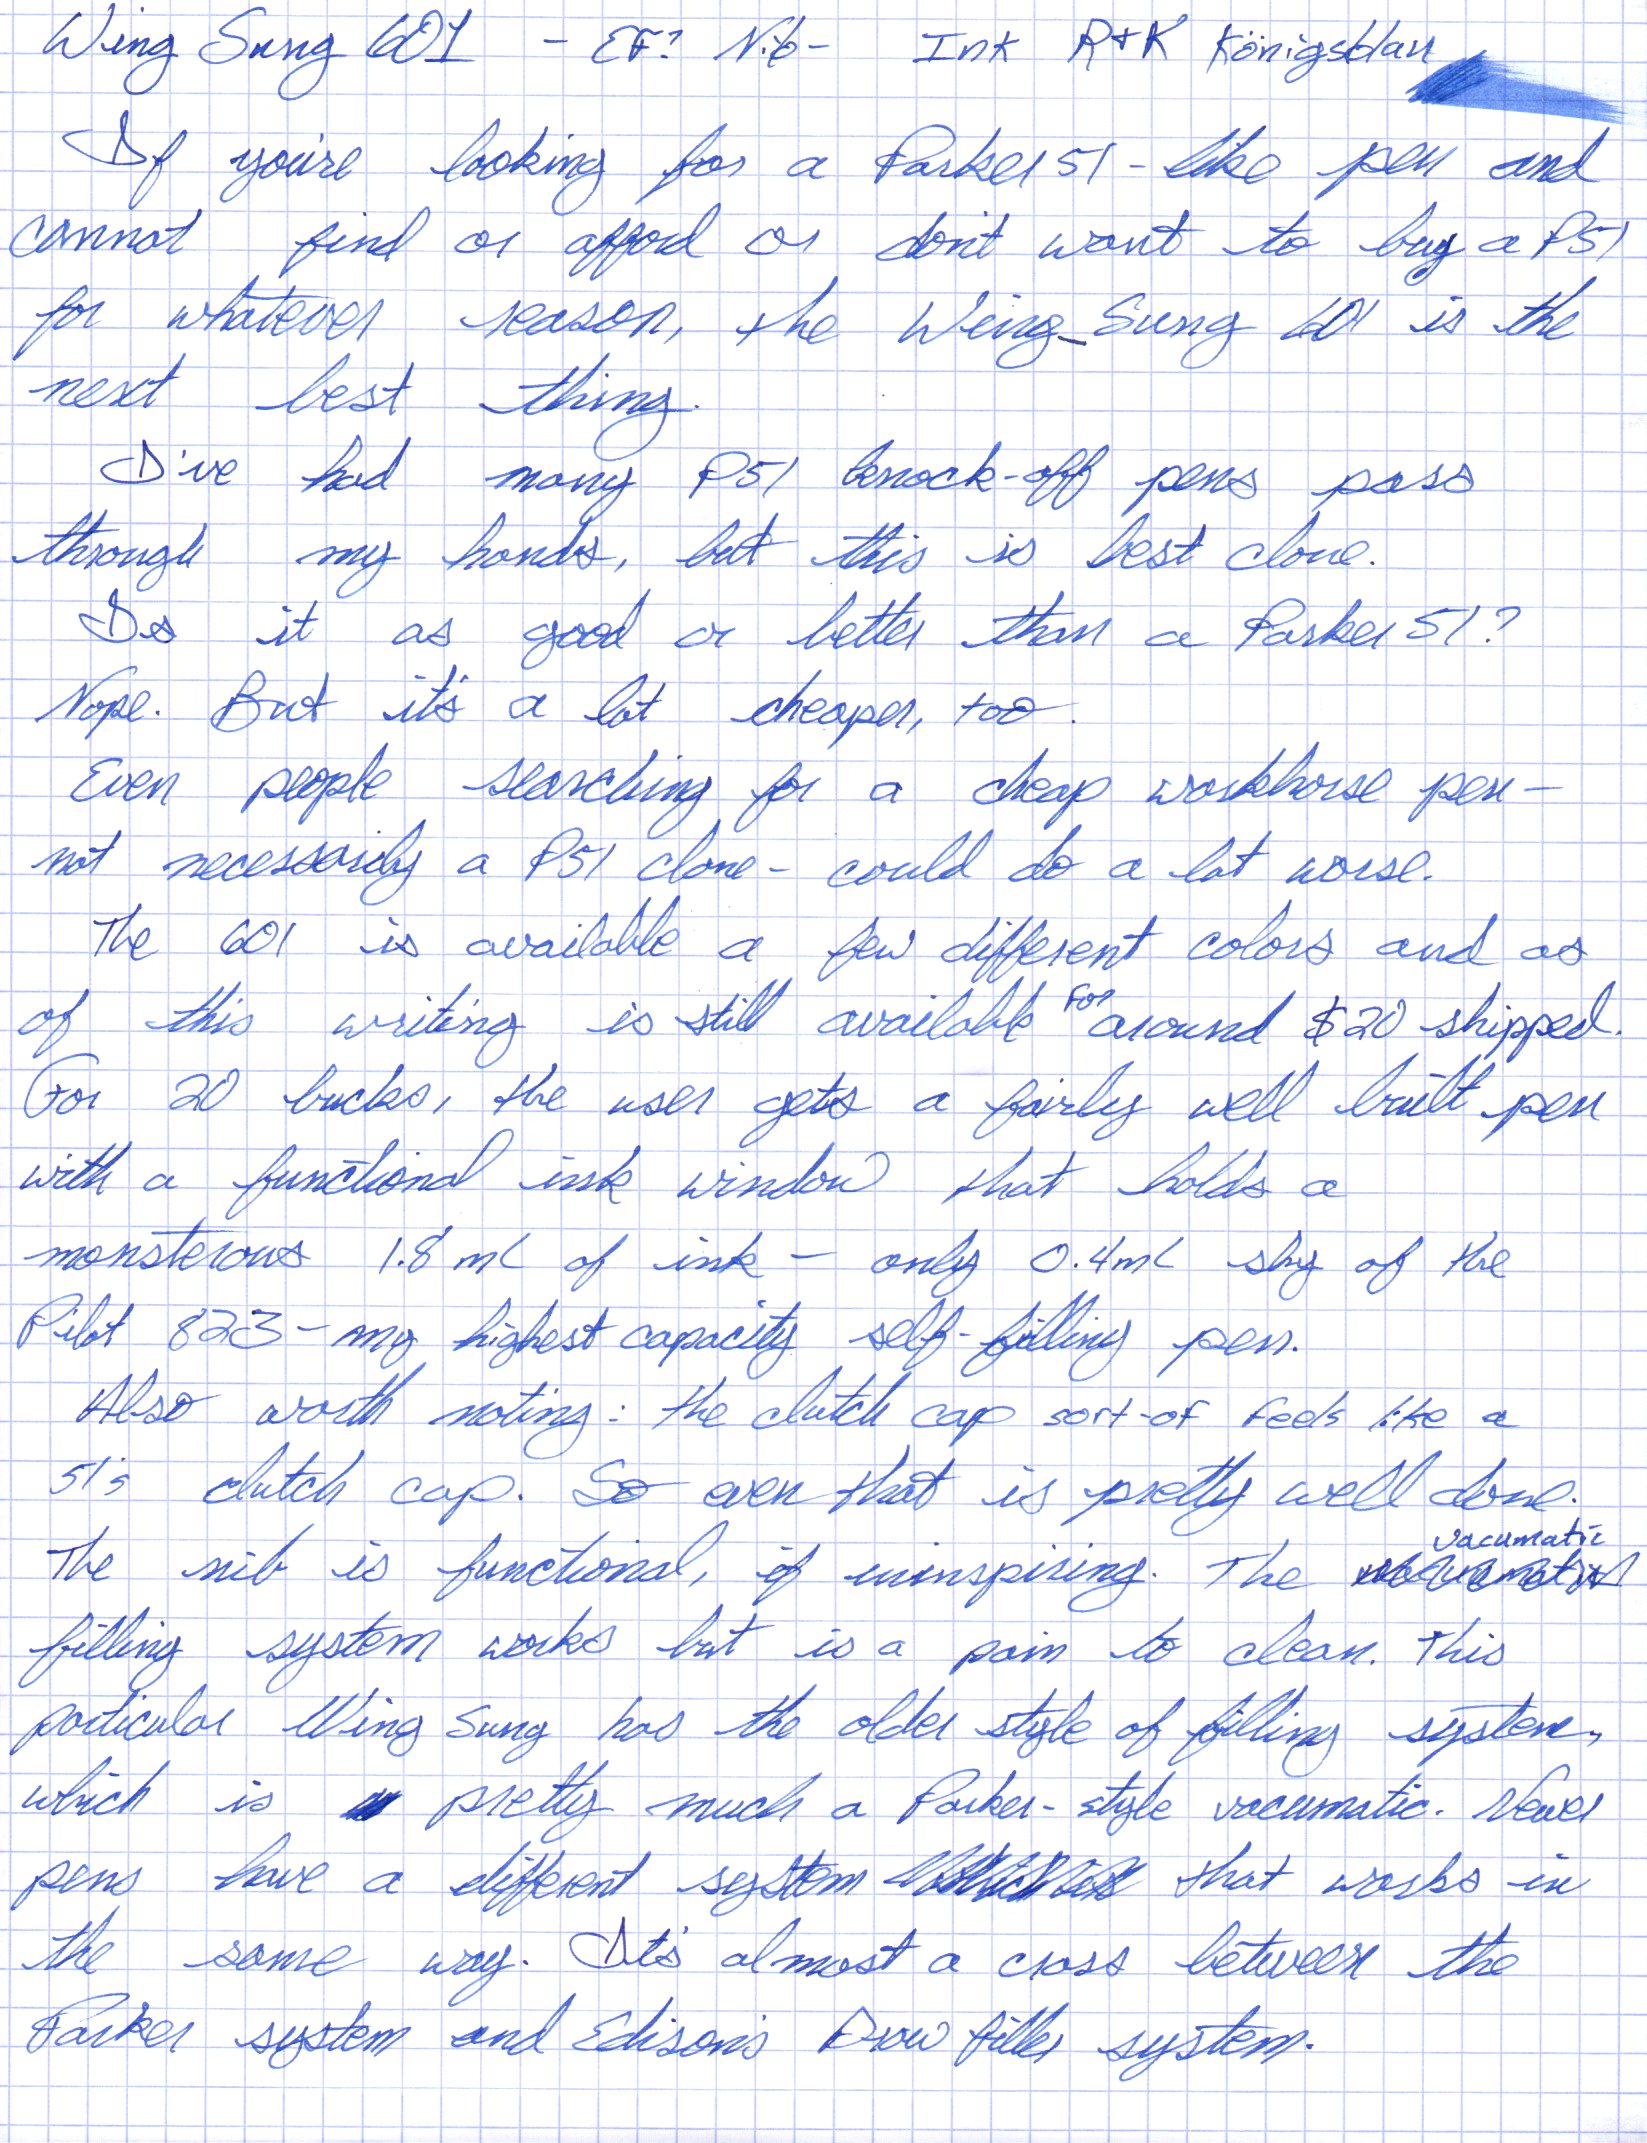 Wing Sung 601 - EF? Nib - Ink R+K Königsblau
If you're looking for a Parker 51-like pen and
cannot find or afford or don't want to buy a P51
for whatever reason, the Wing Sung 601 is the
next best thing.
I've had many P51 knock-off pens pass
through my hands, but this is best clone.
Is it as good or better than a Parker 51?
Nope. But it's a lot cheaper, too.
Even people searching for a cheap workhorse pen -
not necessarily a P51 clone - could do a lot worse.
The 601 is available a few different colors and as
of this writing is still available for around $20 shipped.
For 20 bucks, the user gets a fairly well built pen
with a functional ink window that holds a
monsterous 1.8 mL of ink - only 0.4mL shy of the
Pilot 823 - my highest capacity self-filling pen.
Also worth noting: the clutch cap sort-of feels like a
51's clutch cap. So even that is pretty well done.
The nib is functional, if uninspiring. The vacumatic
filling system works but is a pain to clean. This
particular Wing Sung has the older style of filling system,
which is pretty much a Parker-style vacumatic. Newer
pens have a different system that works in
the same way. It's almost a cross between the
Parker system and Edison's Draw filler system.